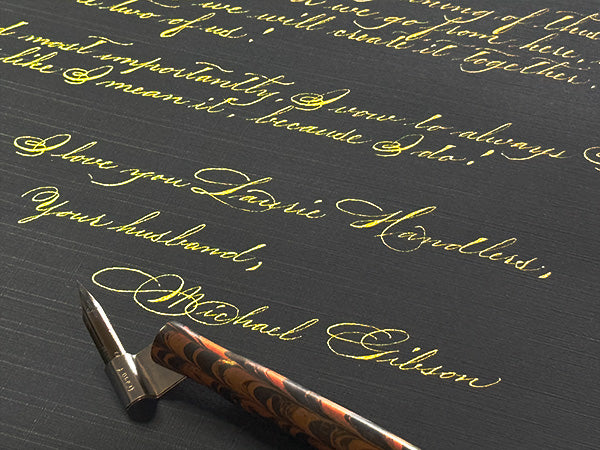 ning of this
we we'll go from here.
two of us! we'll create it together.
most importantly, I vow to always
like I mean it, because I do!
I love you Laurie Handlers,
Your husband,
Michael Gibson